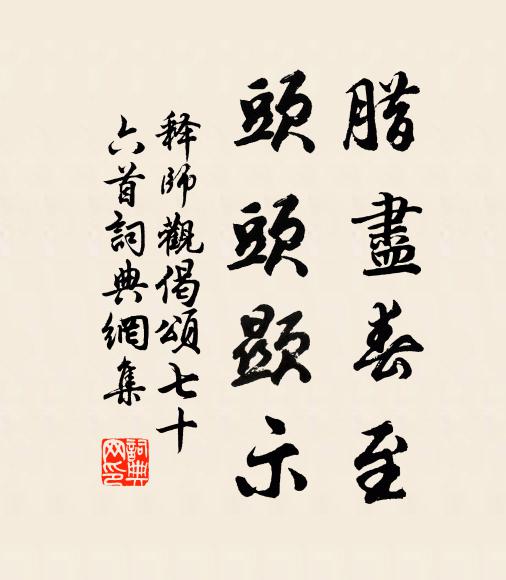 腊盡春至
頭頭顯示
釋師觀偈頌七十
六首詞典網集
詞典網印